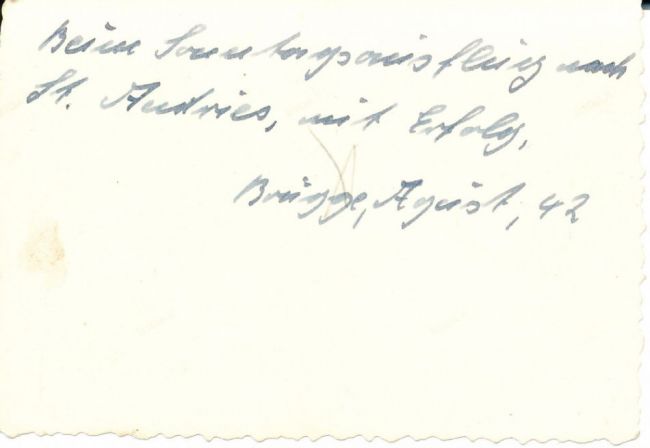 Beim Sonntagsausflug nach
St. Andries, mit Erfolg,
Brügge, Agust, 42